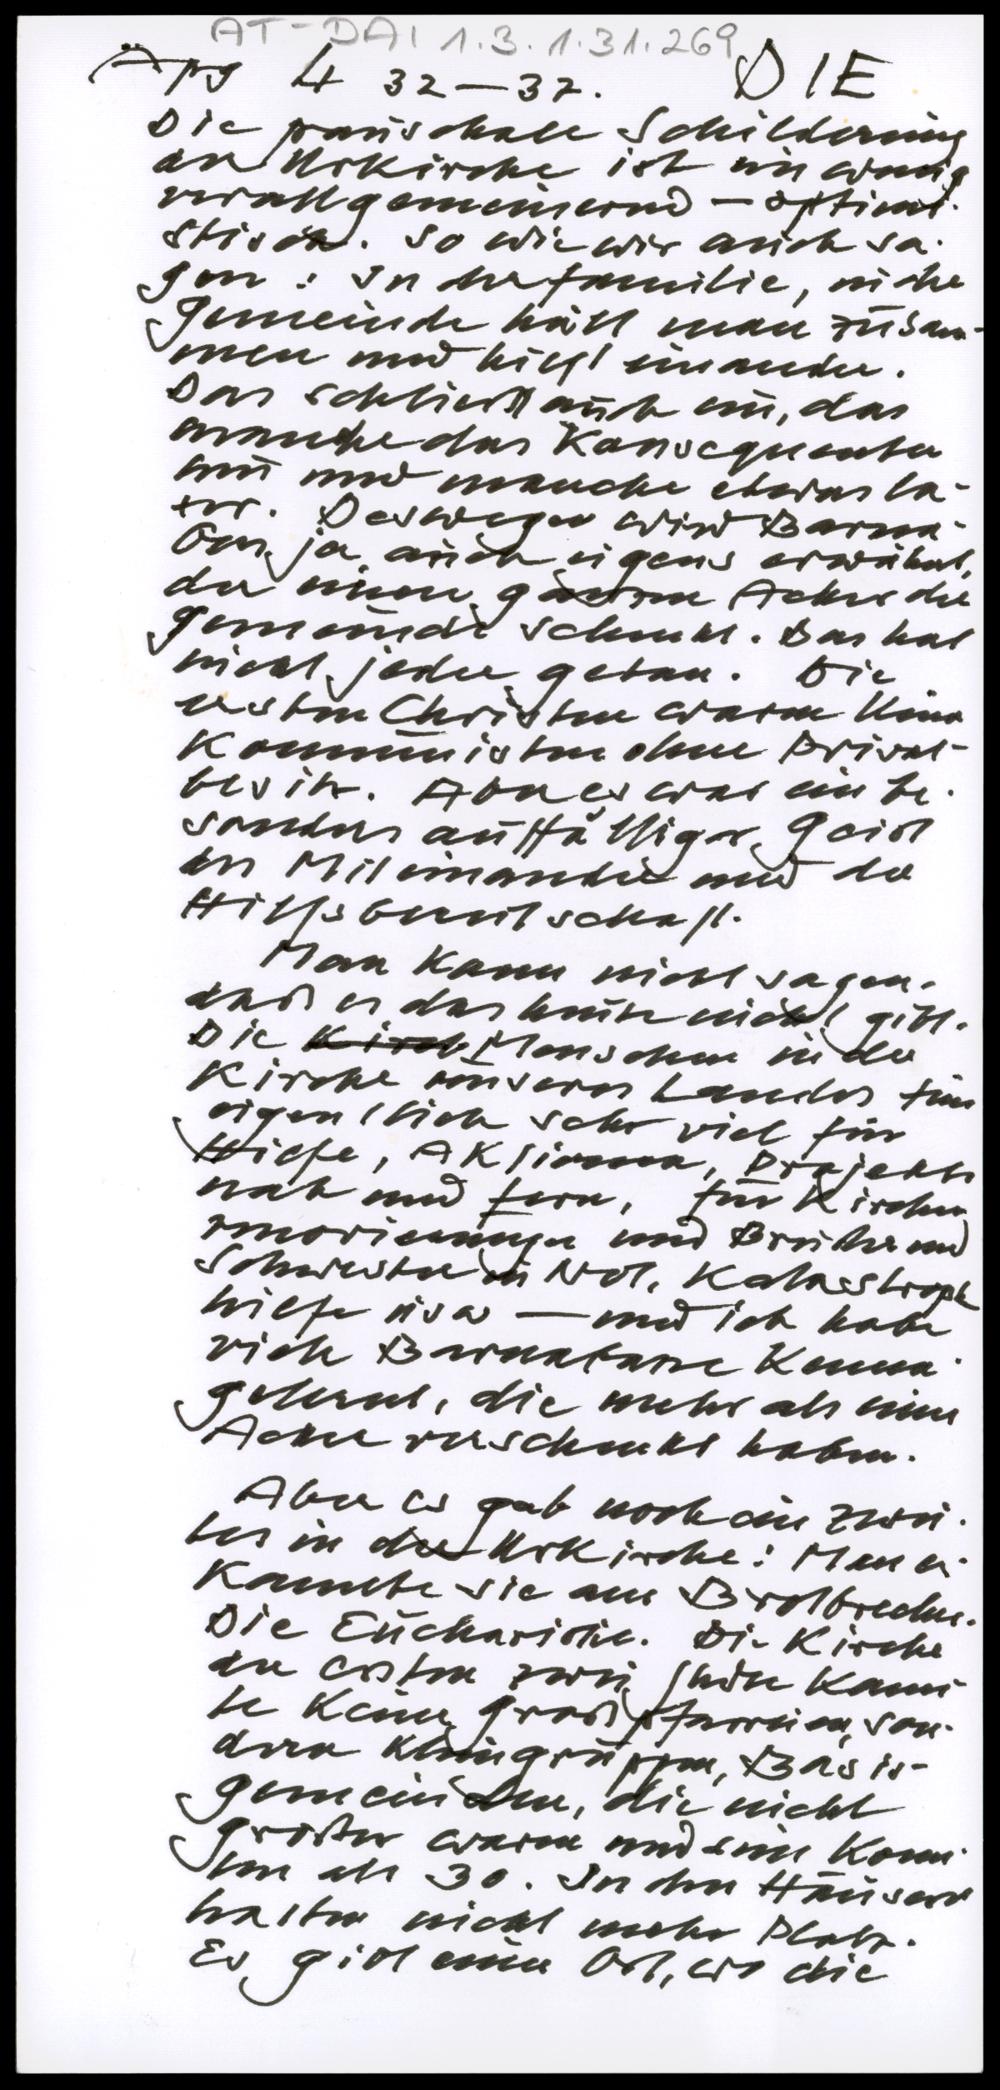 AT-DAI 1.3.1.31.269
Apg 4 32-37. DIE
Die pauschale Schilderung
der Urkirche ist ein wenig
verallgemeinernd - optimi-
stisch. So wie wir auch sa-
gen: In der Familie, in der
Gemeinde hält man zusam-
men und hilft einander.
Das schließt auch ein, das
manche das Konsequenter
tun und manche etwas la-
xer. Deswegen wird Barna-
bas ja auch eigens erwähnt,
der einen ganzen Acker der
Gemeinde schenkt. Das hat
nicht jeder getan. Die
ersten Christen waren keine
Kommunisten ohne Privat-
besitz. Aber es war ein be-
sonders auffälliger Geist
des Miteinander und der
Hilfsbereitschaft.
Man kann nicht sagen,
daß es das heute nicht gibt.
Die Kirch Menschen in der
Kirche unseres Landes tun
eigentlich sehr viel für
Hilfe, Aktionen, Projekte
nah und fern, für Kirchen
renovierungen und Brüder und
Schwestern in Not, Katastroph
hilfe usw - und ich habe
viele Barnabasse kennen
gelernt, die mehr als einen
Acker verschenkt haben.
Aber es gab noch ein zwei-
tes in der Urkirche: Man er-
kannte sie am Brotbrechen.
Die Eucharistie. Die Kirche
der ersten zwei Jhdte kann-
te keine Großpfarreien, son-
dern Kleingruppen, Basis-
gemeinden, die nicht
größer waren und sein konn-
ten als 30. In den Häusern
hatten nicht mehr Platz.
Es gibt einen Ort, wo die